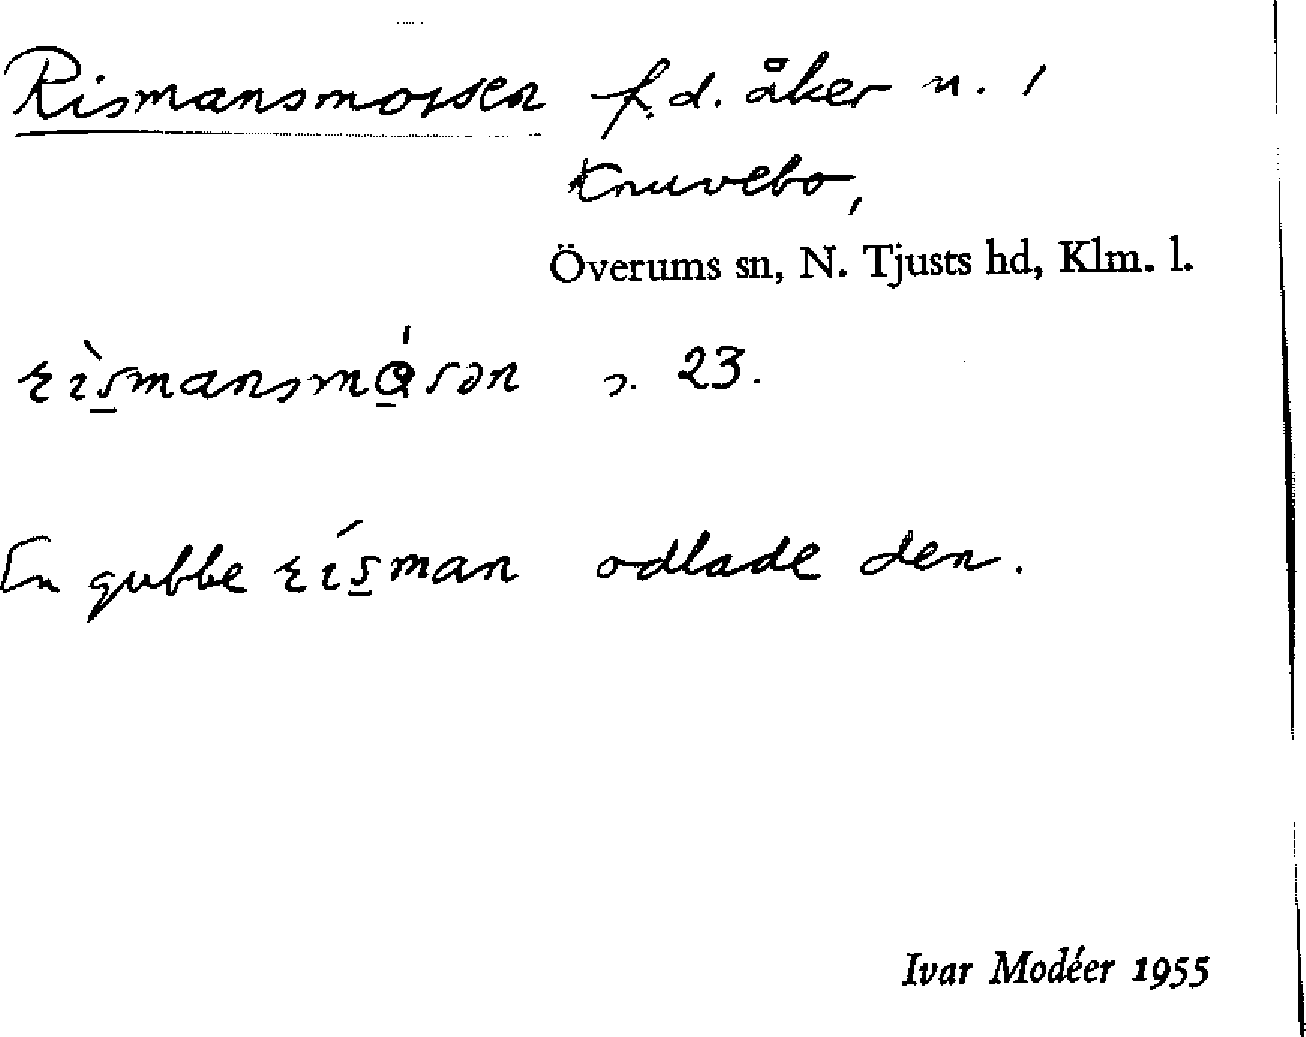 Rismansmossen f.d. åker n. 1
Knuvebo,
Överums sn, N. Tjusts hd, Klm. l.
s. 23.
En gubbe rísman odlade den.
Ivar Modéer 1955